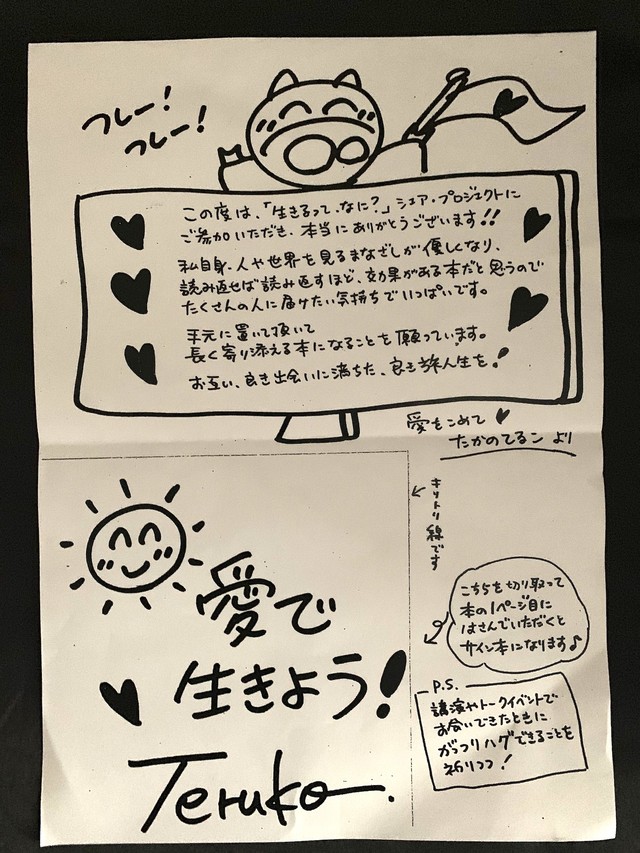 フレー!
フレー!
この度は、「生きるって、なに?」シェア・プロジェクトに
ご参加いただき、本当にありがとうございます!!
私自身、人や世界を見るまなざしが優しくなり、
読み返せば読み返すほど、効果がある本だと思うので
たくさんの人に届けたい気持ちでいっぱいです。
手元に置いて頂いて
長く寄り添える本になることを願っています。
お互い、良き出会いに満ちた、良き旅人生を!
愛をこめて
たかのてるこ より
キリトリ線です
こちらを切り取って
本の1ページ目に
はさんでいただくと
サイン本になります♪
愛で
生きよう!
Teruko.
P.S.
講演やトークイベントで
お会いできたときに
がっつりハグできることを
祈りつつ!